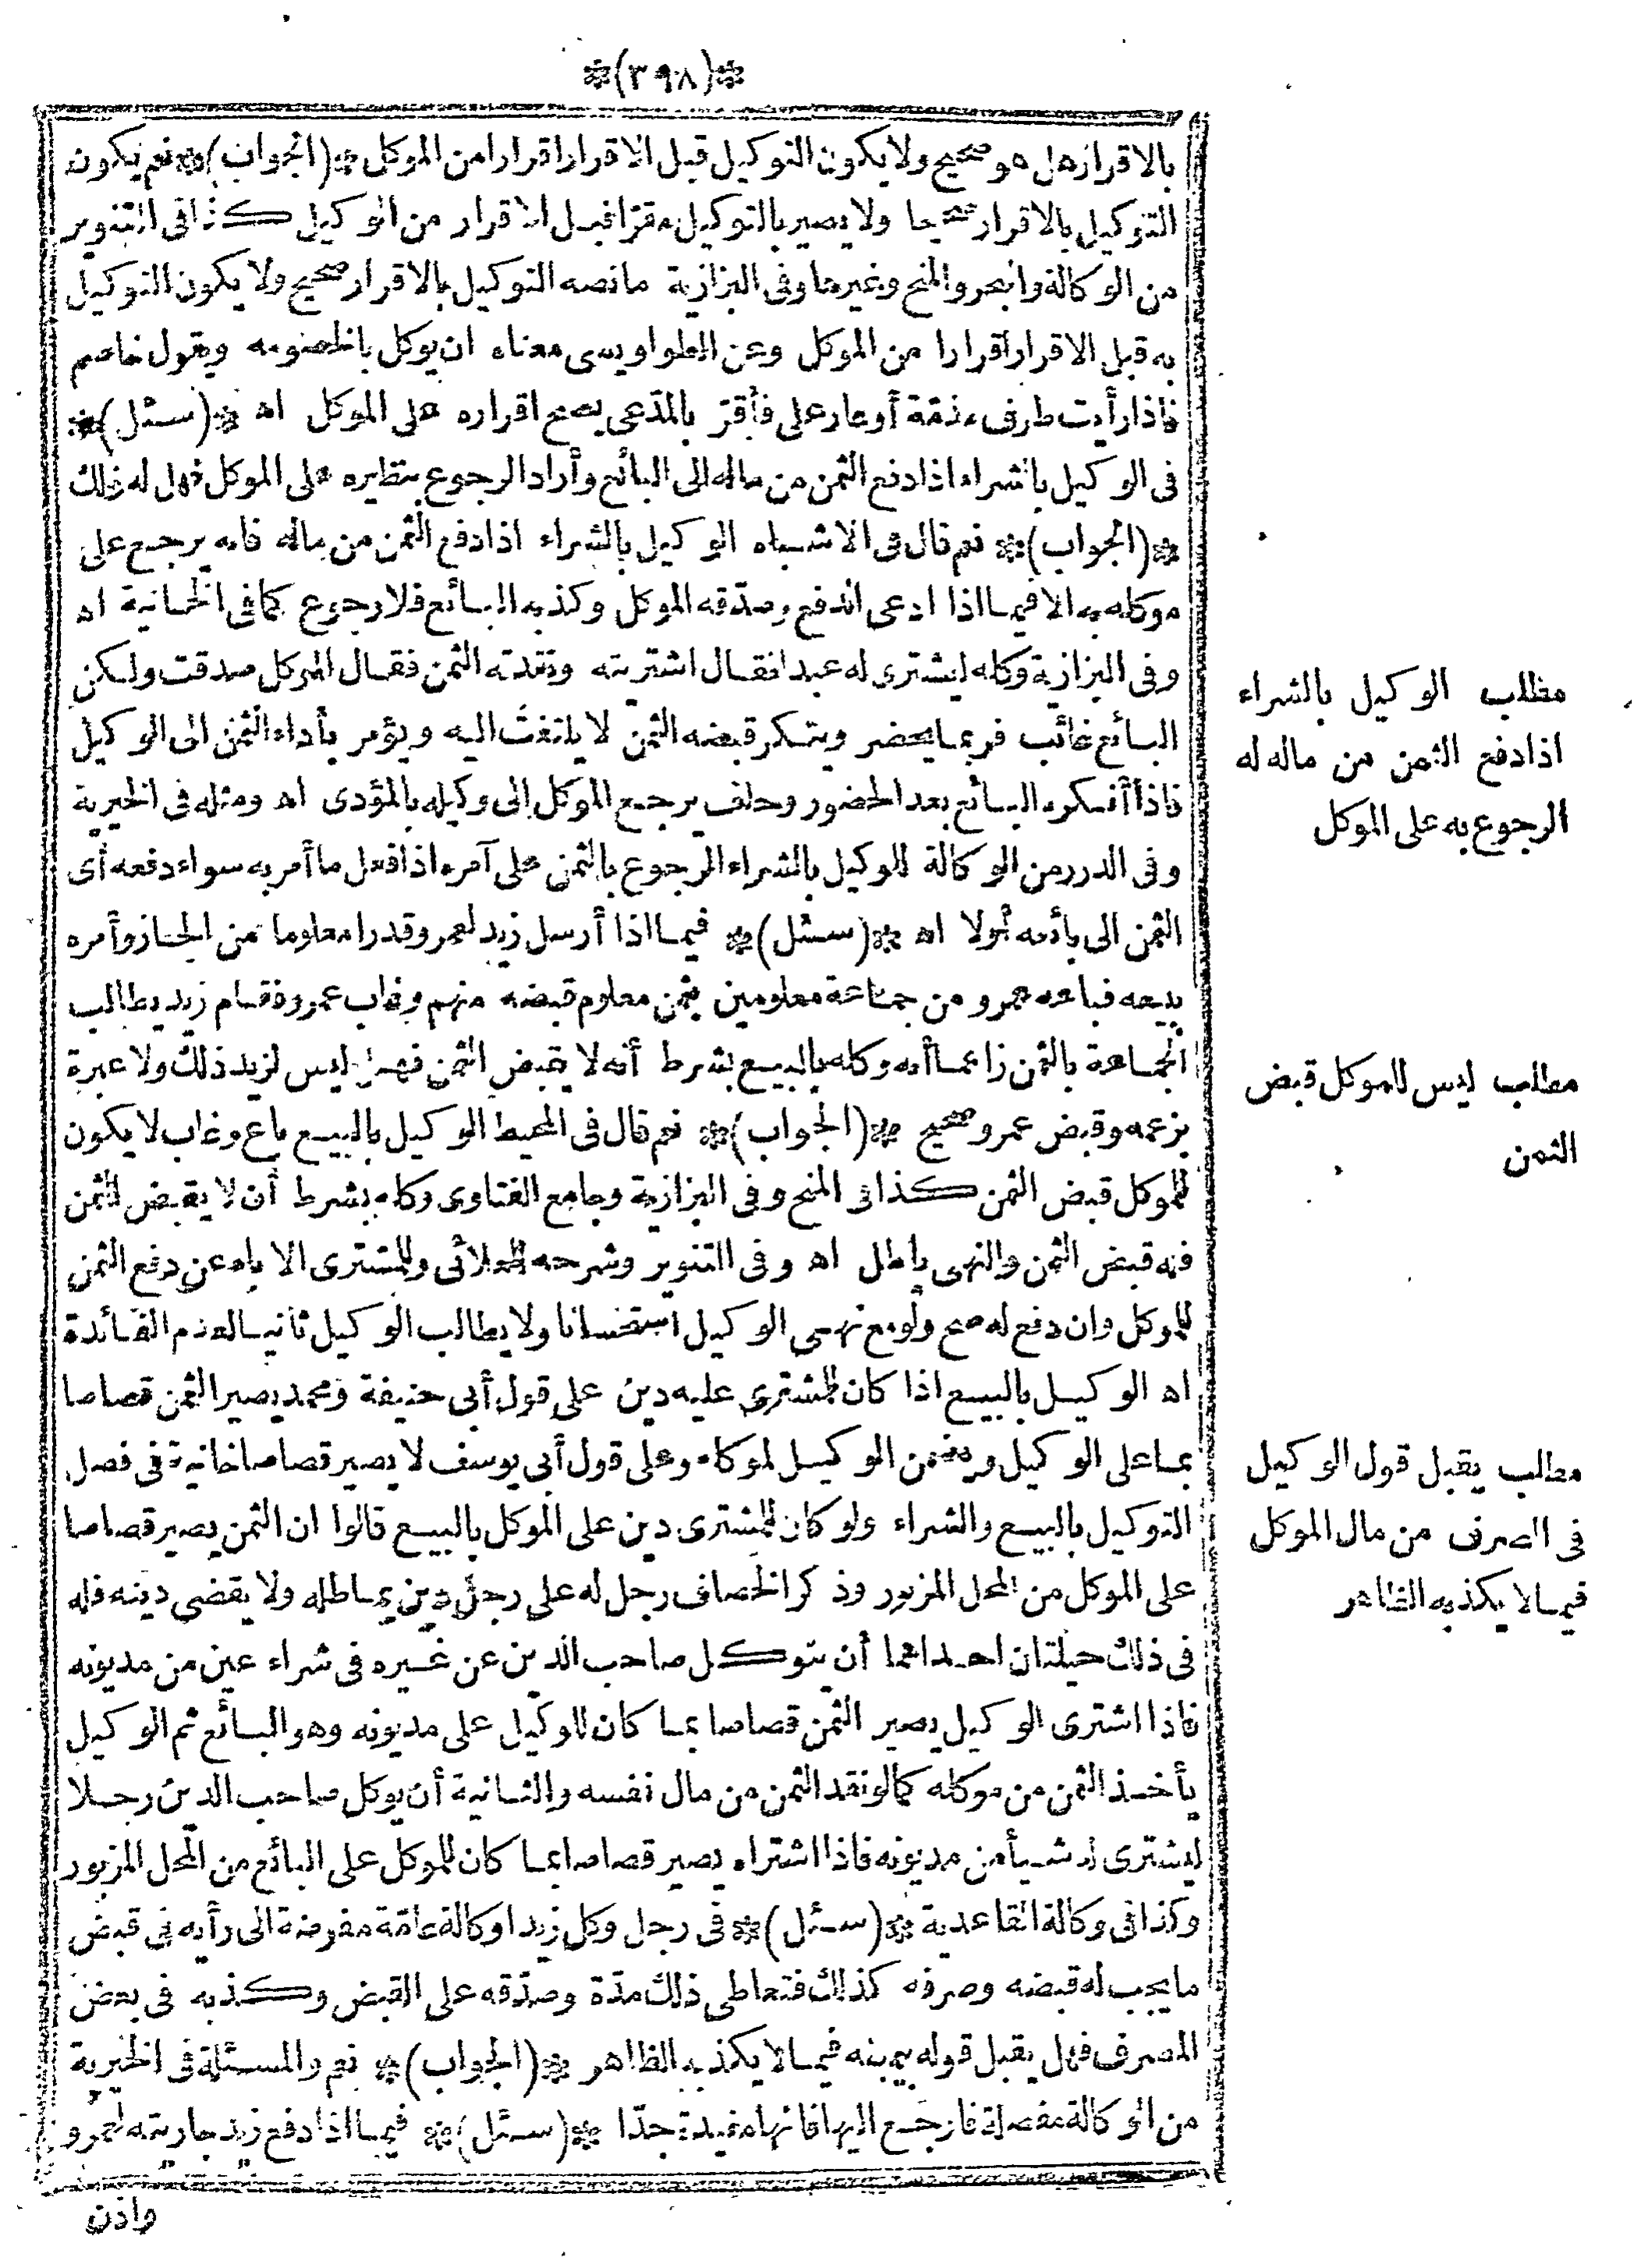 *(٣٩٨)*
بالاقرار هل هو صحيح ولا يكون التوكيل قبل الاقرار اقرارا من الموكل *(الجواب)* نعم يكون
التوكيل بالاقرار صحيحا ولا يصير بالتوكيل مقرّا قبل الاقرار من الوكيل كذا فى التنوير
من الوكالة والبحر والمنح وغيرها وفى البزازية مانصه التوكيل بالاقرار صحيح ولا يكون التوكيل
به قبل الاقرار اقرارا من الموكل وعن الطواويسى معناه ان يوكل بالخصومه ويقول خاصم
فاذا رأيت طرفى مذمّة أو عار على فأقرّ بالمدّعى يصح اقراره على الموكل اه *(سئل)*
فى الوكيل بالشراء اذا دفع الثمن من ماله الى البائع وأراد الرجوع بنظيره على الموكل فهل له ذلك
*(الجواب)* نعم قال فى الاشباه الوكيل بالشراء اذا دفع الثمن من ماله فانه يرجع على
موكله به الا فيما اذا ادعى الدفع وصدّقه الموكل وكذبه البائع فلا رجوع كما فى الخانية اه
وفى البزازية وكله ليشترى له عبدا فقال اشتريته ونقدته الثمن فقال الموكل صدقت ولكن
البائع غائب فربما يحضر وينكر قبضه الثمن لا يلتفت اليه ويؤمر بأداء الثمن الى الوكيل
فاذا أنكره البائع بعد الحضور وحلف يرجع الموكل الى وكيله بالمؤدى اه ومثله فى الخيرية
وفى الدرر من الوكالة للوكيل بالشراء الرجوع بالثمن على آمره اذا فعل ما أمر به سواء دفعه أى
الثمن الى بائعه أولا اه *(سئل)* فيما اذا أرسل زيد لعمرو قدرا معلوما من الخناز وأمره
ببيعه فباعه عمرو من جماعة معلومين بثمن معلوم قبضه منهم وغاب عمرو فقام زيد يطالب
الجماعة بالثمن زاعما أنه وكله بالبيع بشرط أنه لا يقبض الثمن فهل ليس لزيد ذلك ولا عبرة
بزعمه وقبض عمرو صحيح *(الجواب)* نعم قال فى المحيط الوكيل بالبيع باع وغاب لا يكون
للموكل قبض الثمن كذا فى المنح وفى البزازية وجامع الفتاوى وكله بشرط أن لا يقبض الثمن
فله قبض الثمن والنهى باطل اه وفى التنوير وشرحه للعلائى وللمشترى الاباء عن دفع الثمن
للموكل وان دفع له صح ولو مع نهى الوكيل استحسانا ولا يطالب الوكيل ثانيا لعدم الفائدة
اه الوكيل بالبيع اذا كان للمشترى عليه دين على قول أبى حنيفة ومحمد يصير الثمن قصاصا
بما على الوكيل ويضمن الوكيل لموكله وعلى قول أبى يوسف لا يصير قصاصا خانية فى فصل
التوكيل بالبيع والشراء ولو كان للمشترى دين على الموكل بالبيع قالوا ان الثمن يصير قصاصا
على الموكل من المحل المزبور وذكر الخصاف رجل له على رجل دين يماطله ولا يقضى دينه فله
فى ذلك حيلتان احداهما أن يتوكل صاحب الدين عن غيره فى شراء عين من مديونه
فاذا اشترى الوكيل يصير الثمن قصاصا بما كان للوكيل على مديونه وهو البائع ثم الوكيل
يأخذ الثمن من موكله كما لو نقد الثمن من مال نفسه والثانية أن يوكل صاحب الدين رجلا
ليشترى له شيأ من مديونه فاذا اشتراه يصير قصاصا بما كان للموكل على البائع من المحل المزبور
وكذا فى وكالة القاعدية *(سئل)* فى رجل وكل زيدا وكالة عامّة مفوضة الى رأيه فى قبض
ما يجب له قبضه وصرفه كذلك فتعاطى ذلك مدّة وصدّقه على القبض وكذبه فى بعض
المصرف فهل يقبل قوله بيمينه فيما لا يكذبه الظاهر *(الجواب)* نعم والمسئلة فى الخيرية
من الوكالة مفصلة فارجع اليها فانها مفيدة جدّا *(سئل)* فيما اذا دفع زيد جاريته لعمرو
واذن
مطلب الوكيل بالشراء
اذا دفع الثمن من ماله له
الرجوع به على الموكل
مطلب ليس للموكل قبض
الثمن
مطلب يقبل قول الوكيل
فى الصرف من مال الموكل
فيما لا يكذبه الظاهر